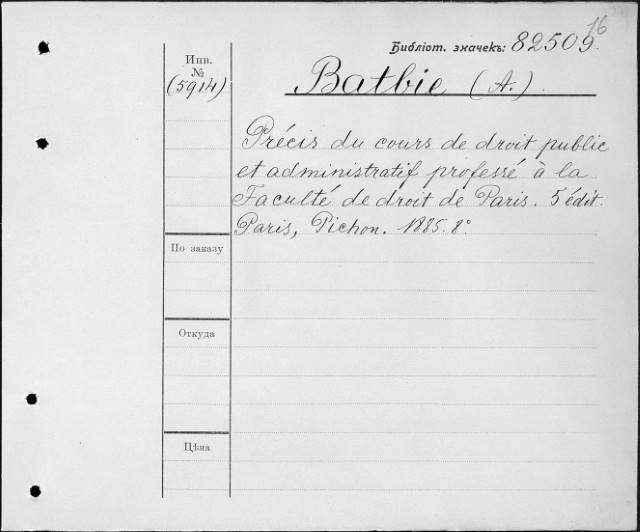 16
Библіот. значекъ: 82509.
Инв.
№
(5914)
Batbie (A.)
Précis du cours de droit public
et administratif professé à la
Faculté de droit de Paris. 5 édit.
Paris, Pichon. 1885. 8°
По заказу
Откуда
Цѣна